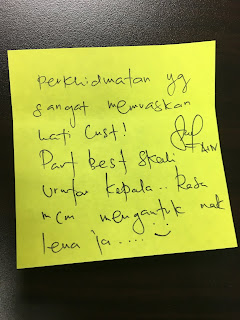 Perkhidmatan yg
sangat memuaskan
hati Cust!
Part best skali
urutan kepala.. Rasa
mcm mengantuk nak
lena ja.... :)